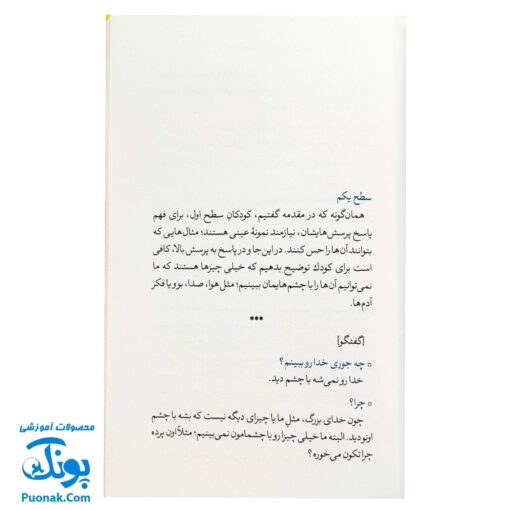 سطح یکم
همان‌گونه که در مقدمه گفتیم، کودکانِ سطح اول، برای فهم
پاسخ پرسش‌هایشان، نیازمند نمونهٔ عینی هستند؛ مثال‌هایی که
بتوانند آن‌ها را حس کنند. در این‌جا و در پاسخ به پرسش بالا، کافی
است برای کودك توضیح بدهیم که خیلی چیزها هستند که ما
نمی‌توانیم آن‌ها را با چشم‌هایمان ببینیم؛ مثل هوا، صدا، بو و یا فکر
آدم‌ها.
***
[گفتگو]
○ چه جوری خدا رو ببینم؟
خدا رو نمی‌شه با چشم دید.
○ چرا؟
چون خدای بزرگ، مثلِ ما یا چیزای دیگه نیست که بشه با چشم
اونو دید. البته ما خیلی چیزا رو با چشمامون نمی‌بینیم؛ مثلاً اون پرده
چرا تکون می‌خوره؟
محصولات آموزشی
پونک
Puonak.Com